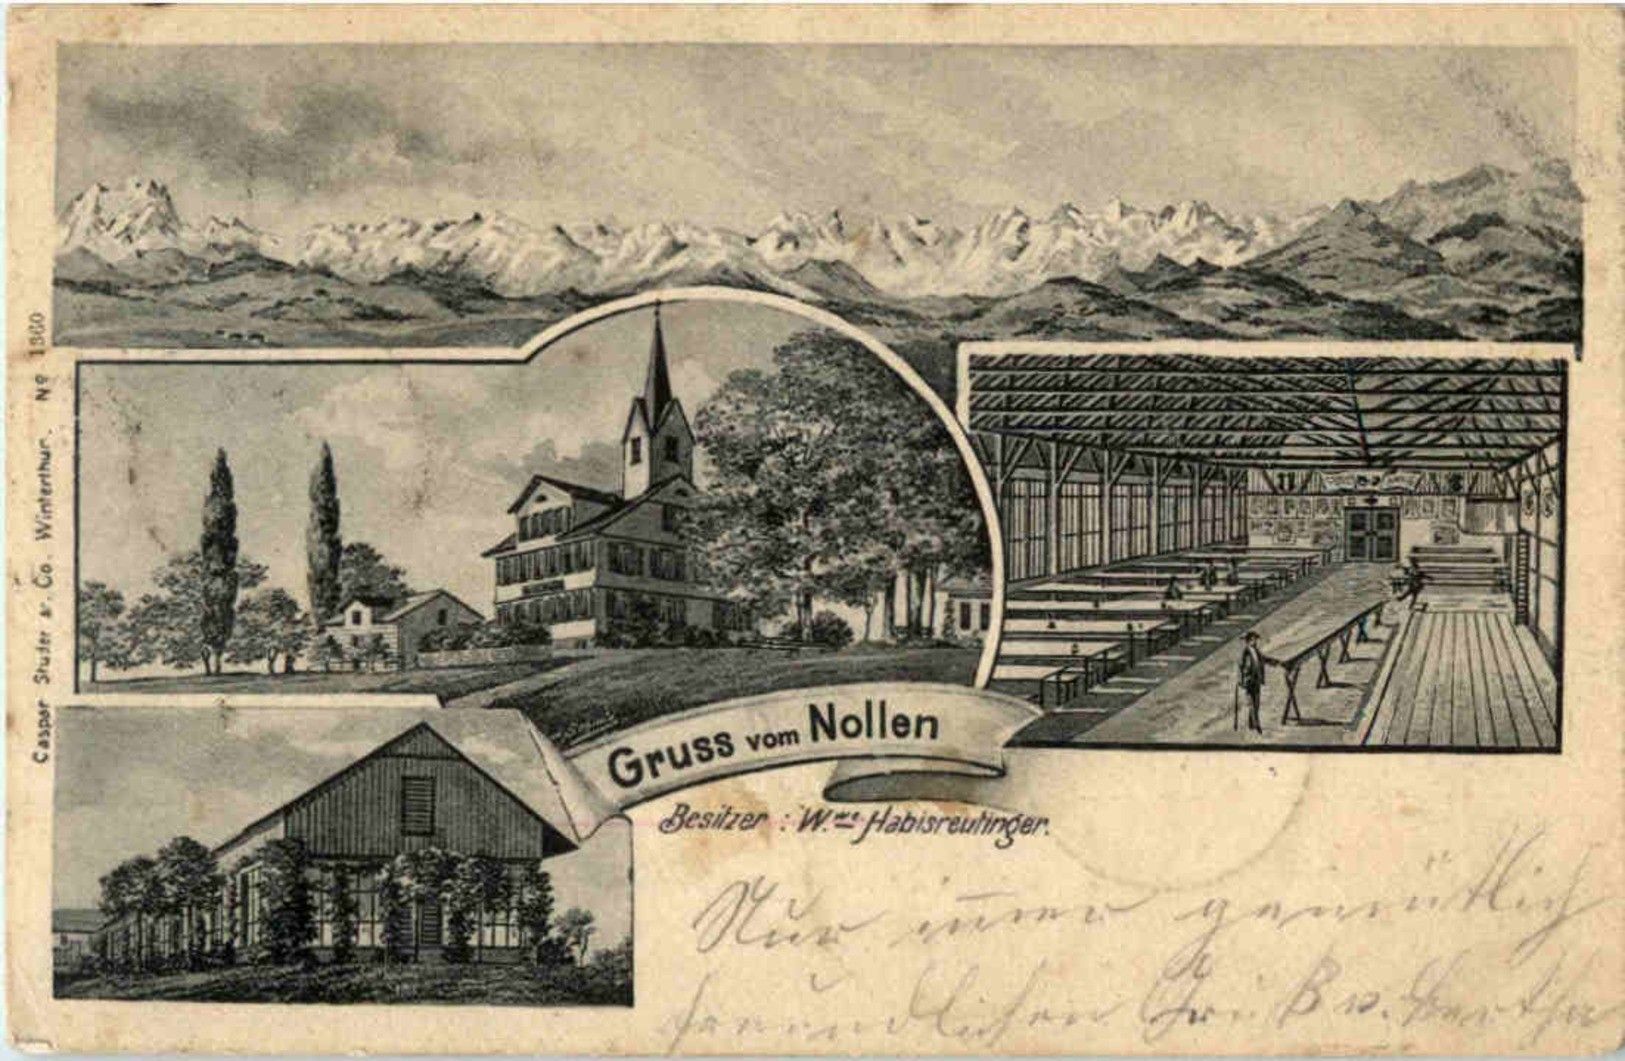 Caspar Studer & Co. Winterthur. No 1360
Gruss vom Nollen
Besitzer: Wwe Habisreutinger.
Nur immer gemütlich
freundlichen Gruß v. Bertha